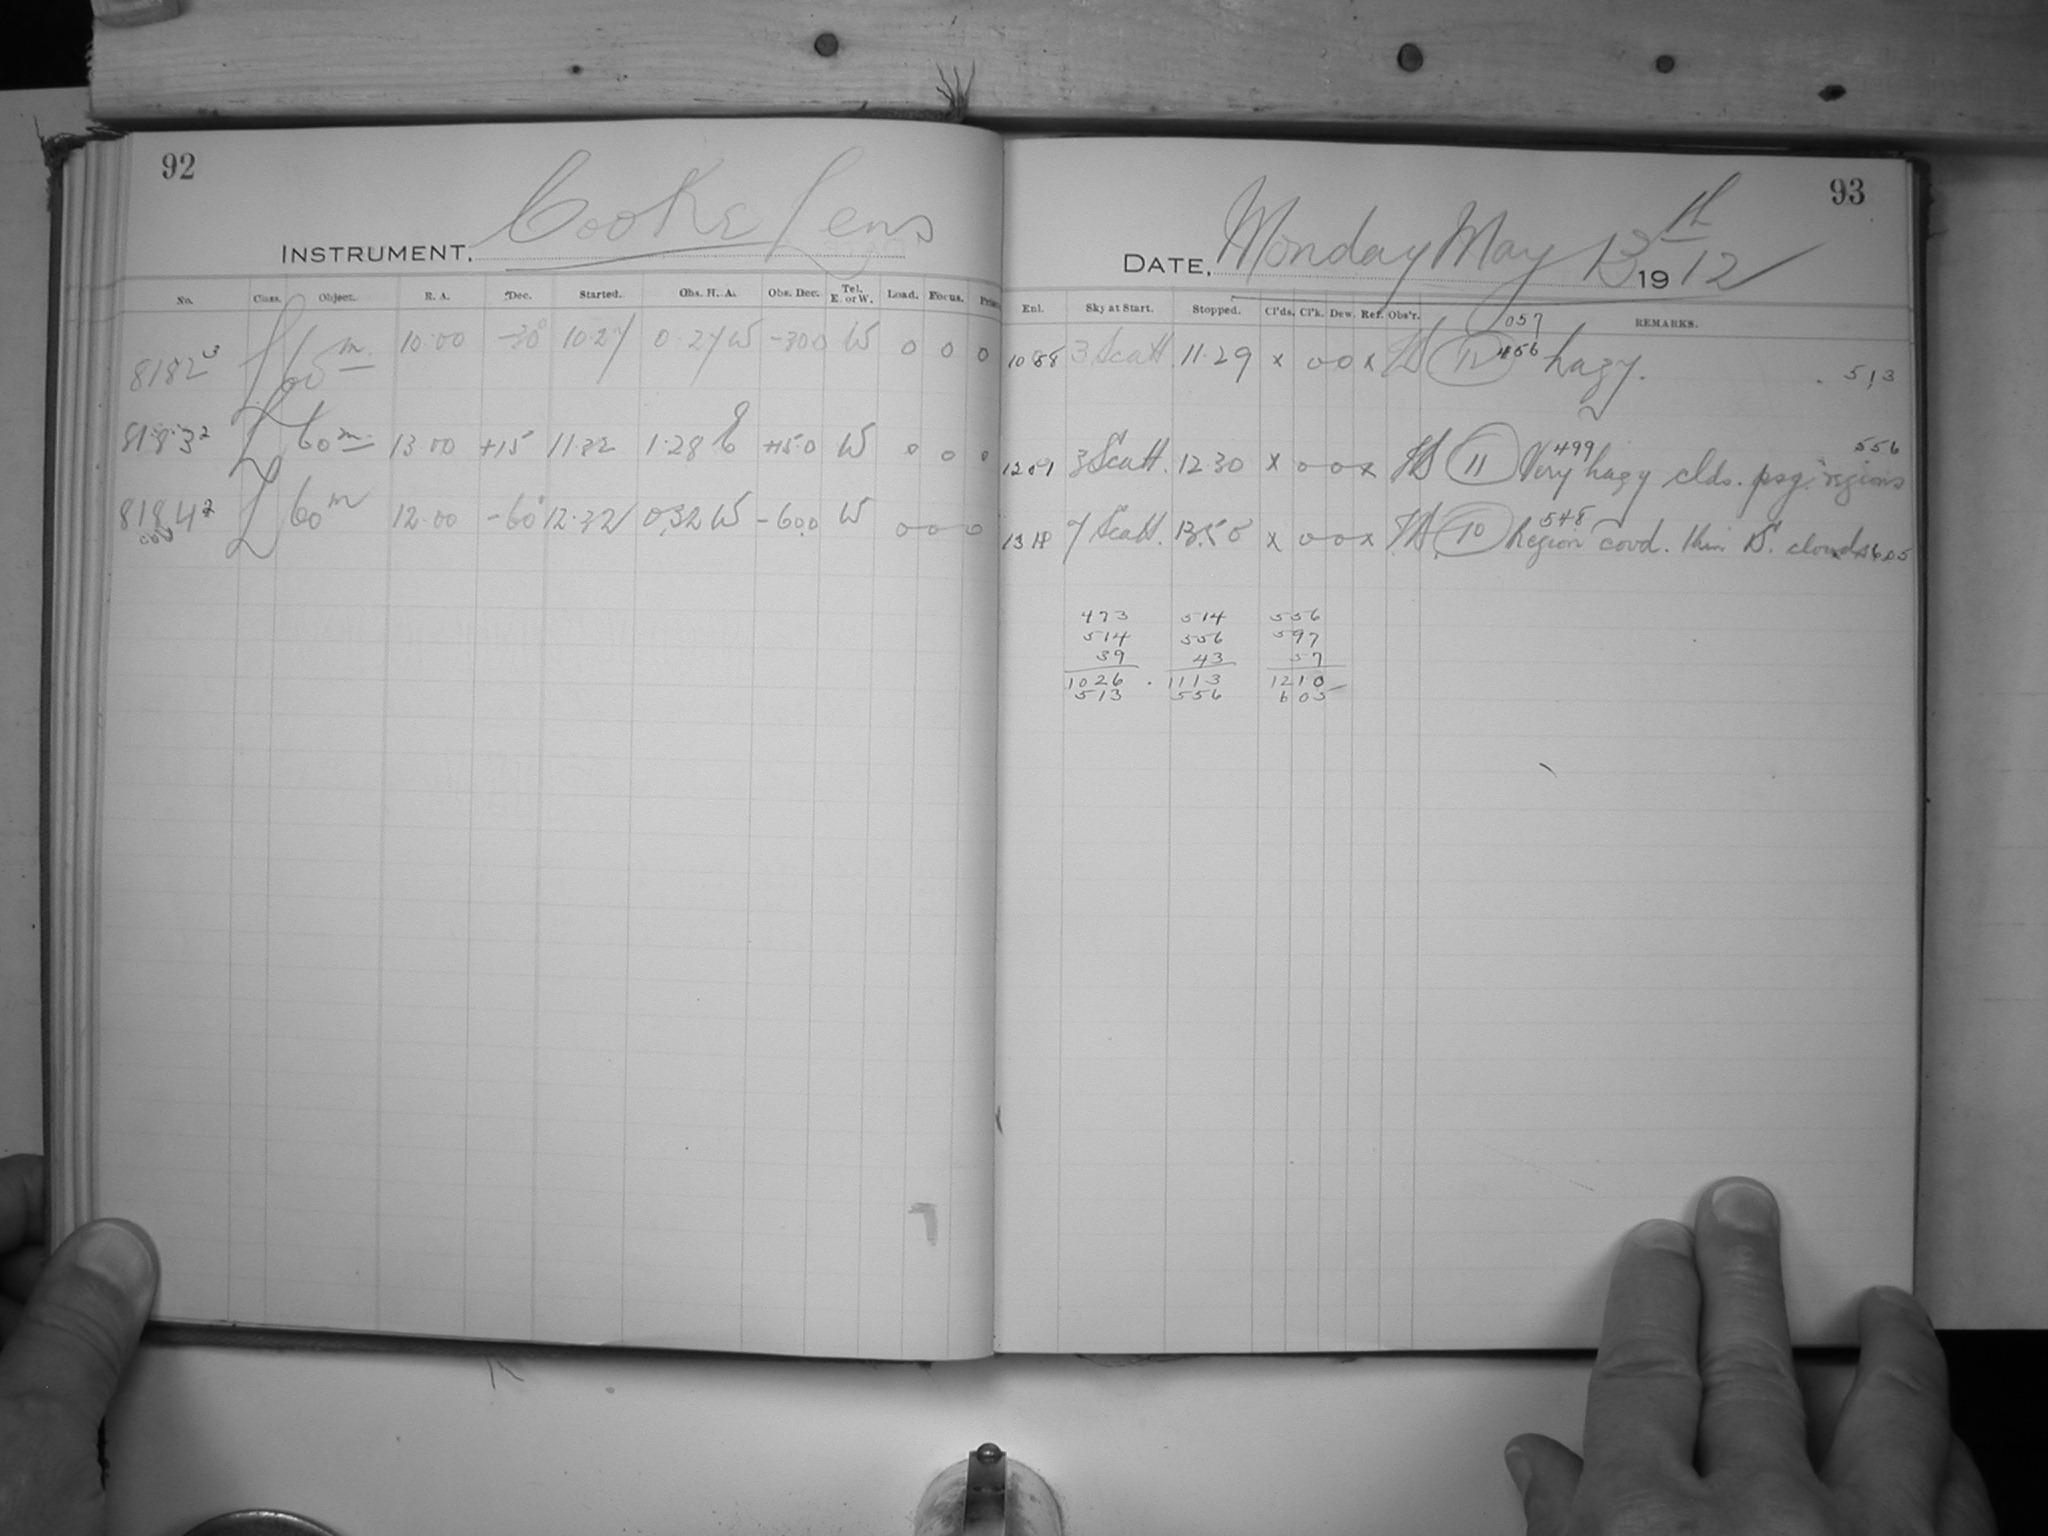 92
INSTRUMENT. Cooke Lens
No. Class. Object. R. A. Dec. Started. Obs. H. A. Obs. Dec. Tel. E. or W. Load. Focus.
8182 3 L 60 m. 10.00 -30° 10.27 0.27 W -30.0 W 0 0 0
8183 2 L 60 m. 13.00 +15 11.32 1.28 E +15.0 W 0 0 0
8184 2 L 60 m 12.00 -60° 12.32 0.32 W -60.0 W 0 0 0
93
DATE, Monday May 13th 1912
Enl. Sky at Start. Stopped. Cl'ds. Cl'k. Dew. Ref. Obs'r. REMARKS.
057
1088 3 Scatt. 11.29 x 0 0 x 12 456 hazy. 513
499 556
1201 3 Scatt. 12.30 x 0 0 x 11 Very hazy clds. psg. regions
548
7 Scatt. x 0 0 x 10 Region covd. thin S. clouds 605
473 514 556
514 556 597
39 43 57
1026 . 1113 1210
513 556 605